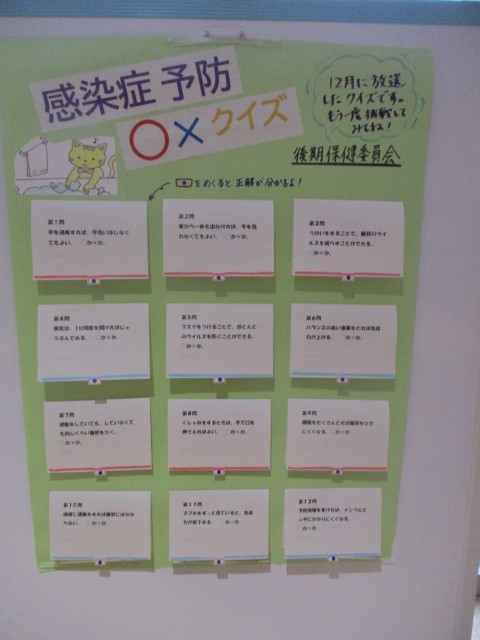 感染症予防
○×クイズ
12月に放送
したクイズです。
もう一度挑戦して
みてね!
後期保健委員会
をめくると正解が分かるよ!
第1問
手を消毒すれば、手洗いはしなく
てもよい。 ○か×か。
第2問
家から一歩も出なければ、手を洗
わなくてもよい。 ○か×か。
第3問
うがいをすることで、細菌やウイ
ルスを減べすことができる。
○か×か。
第4問
換気は、1分間窓を開ければじゅ
うぶんである。 ○か×か。
第5問
マスクをつけることで、ほとんど
のウイルスを防ぐことができる。
○か×か。
第6問
バランスの良い食事をとれば免疫
力が上がる。 ○か×か。
第7問
運動をしていても、していなくて
も同じくらい風邪をひく。
○か×か。
第8問
くしゃみをするときは、手で口を
押さえればよい。 ○か×か。
第9問
睡眠をたくさんとれば風邪をひき
にくくなる。 ○か×か。
第10問
適度に運動をすれば風邪にはかか
らない。 ○か×か。
第11問
スマホをずっと見ていると、免疫
力が低下する。 ○か×か。
第12問
予防接種を受ければ、インフルエ
ンザにかかりにくくなる。
○か×か。